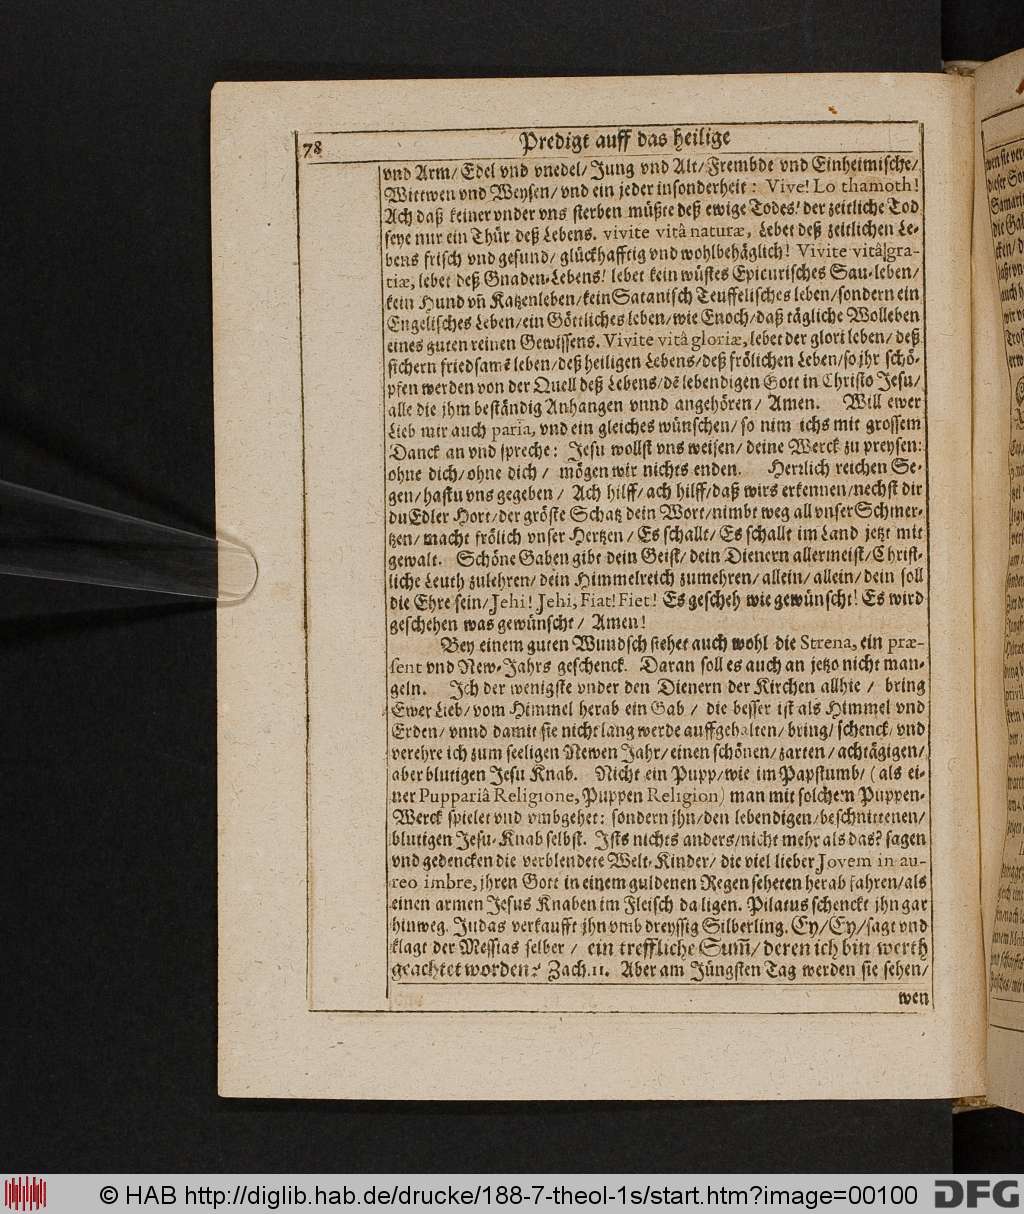 78
Predigt auff das heilige
vnd Arm/ Edel vnd vnedel/ Jung vnd Alt/ Frembde vnd Einheimische/
Wittwen vnd Weysen/ vnd ein jeder insonderheit: Vive! Lo thamoth!
Ach daß keiner vnder vns sterben müßte deß ewige Todes! der zeitliche Tod
seye nur ein Thür deß Lebens. vivite vitâ naturæ, Lebet deß zeitlichen Le-
bens frisch vnd gesund/ glückhafftig vnd wohlbehäglich! Vivite vitâ gra-
tiæ, lebet deß Gnaden-Lebens! lebet kein wüstes Epicurisches Sau-leben/
kein Hund vñ Katzenleben/ kein Satanisch Teuffelisches leben/ sondern ein
Engelisches Leben/ ein Göttliches leben/ wie Enoch/ daß tägliche Wolleben
eines guten reinen Gewissens. Vivite vitâ gloriæ, lebet der glori leben/ deß
sichern friedsamẽ leben/ deß heiligen Lebens/ deß frölichen Leben/ so jhr schö-
pfen werden von der Quell deß Lebens/ dẽ lebendigen Gott in Christo Jesu/
alle die jhm beständig Anhangen vnnd angehören/ Amen. Will ewer
Lieb mir auch paria, vnd ein gleiches wünschen/ so nim ichs mit grossem
Danck an vnd spreche: Jesu wollst vns weisen/ deine Werck zu preysen:
ohne dich/ ohne dich/ mögen wir nichts enden. Hertzlich reichen Se-
gen/ hastu vns gegeben/ Ach hilff/ ach hilff/ daß wirs erkennen/ nechst dir
du Edler Hort/ der gröste Schatz dein Wort/ nimbt weg all vnser Schmer-
tzen/ macht frölich vnser Hertzen/ Es schallt/ Es schallt im Land jetzt mit
gewalt. Schöne Gaben gibt dein Geist/ dein Dienern allermeist/ Christ-
liche Leuth zulehren/ dein Himmelreich zumehren/ allein/ allein/ dein soll
die Ehre sein/ Jehi! Jehi, Fiat! Fiet! Es gescheh wie gewünscht! Es wird
geschehen was gewünscht/ Amen!
Bey einem guten Wundsch stehet auch wohl die Strena, ein præ-
sent vnd New-Jahrs geschenck. Daran soll es auch an jetzo nicht man-
geln. Ich der wenigste vnder den Dienern der Kirchen allhie/ bring
Ewer Lieb/ vom Himmel herab ein Gab/ die besser ist als Himmel vnd
Erden/ vnnd damit sie nicht lang werde auffgehalten/ bring/ schenck/ vnd
verehre ich zum seeligen Newen Jahr/ einen schönen/ zarten/ achtägigen/
aber blutigen Jesu Knab. Nicht ein Pupp/ wie im Papstumb/ (als ei-
ner Puppariâ Religione, Puppen Religion) man mit solchem Puppen-
Werck spielet vnd vmbgehet: sondern jhn/ den lebendigen/ beschnittenen/
blutigen Jesu-Knab selbst. Ists nichts anders/ nicht mehr als das? sagen
vnd gedencken die verblendete Welt-Kinder/ die viel lieber Jovem in au-
reo imbre, jhren Gott in einem guldenen Regen seheten herab fahren/ als
einen armen Jesus Knaben im Fleisch da ligen. Pilatus schenckt jhn gar
hinweg. Judas verkaufft jhn vmb dreyssig Silberling. Ey/ Ey/ sagt vnd
klagt der Messias selber/ ein treffliche Sum̃/ deren ich bin werth
geachtet worden? Zach. 11. Aber am Jüngsten Tag werden sie sehen/
wen
© HAB http://diglib.hab.de/drucke/188-7-theol-1s/start.htm?image=00100
DFG